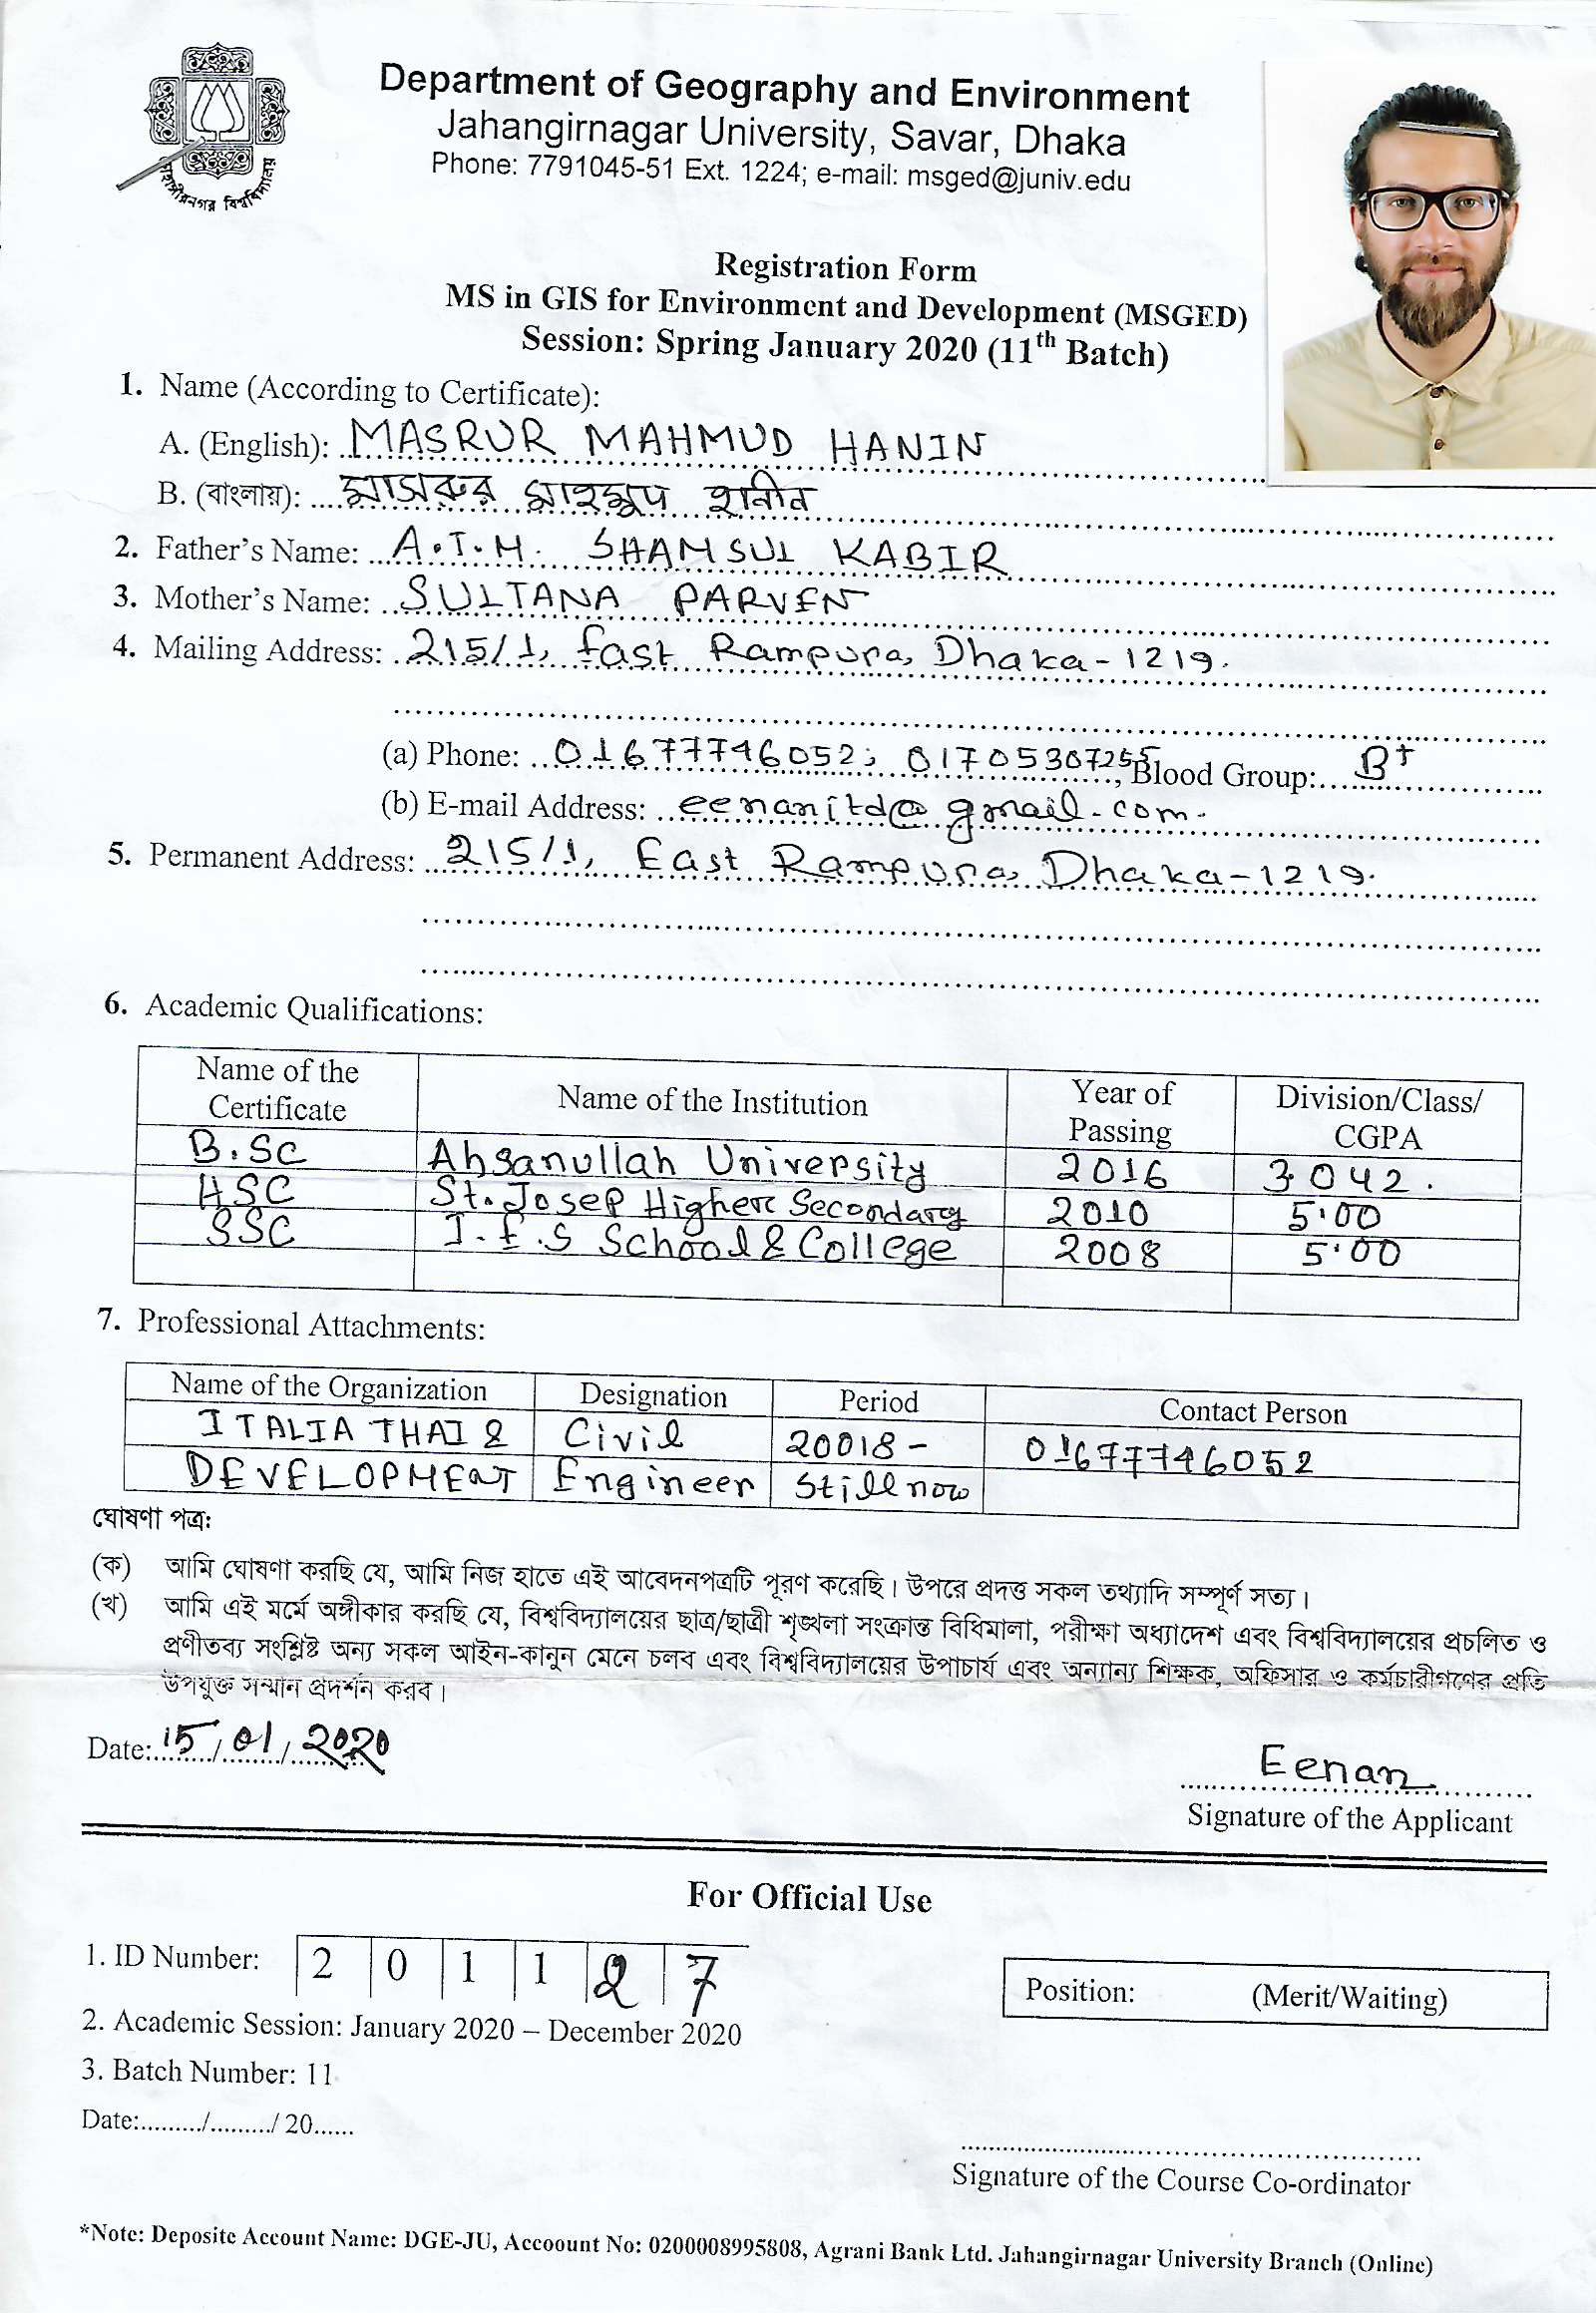 জাহাঙ্গীরনগর বিশ্ববিদ্যালয়
Department of Geography and Environment
Jahangirnagar University, Savar, Dhaka
Phone: 7791045-51 Ext. 1224; e-mail: msged@juniv.edu
Registration Form
MS in GIS for Environment and Development (MSGED)
Session: Spring January 2020 (11th Batch)
1. Name (According to Certificate):
A. (English): MASRUR MAHMUD HANIN
B. (বাংলায়): মাসরুর মাহমুদ হানীন
2. Father's Name: A.T.M. SHAMSUL KABIR
3. Mother's Name: SULTANA PARVEN
4. Mailing Address: 215/1, East Rampura, Dhaka-1219.
(a) Phone: 01677746052; 01705307255, Blood Group: B+
(b) E-mail Address: eenanitd@gmail.com.
5. Permanent Address: 215/1, East Rampura, Dhaka-1219.
6. Academic Qualifications:
Name of the Certificate Name of the Institution Year of Passing Division/Class/ CGPA
B.SC Ahsanullah University 2016 3.042.
HSC St. Josep Higher Secondary 2010 5.00
SSC I.E.S School & College 2008 5.00
7. Professional Attachments:
Name of the Organization Designation Period Contact Person
ITALIA THAI & Civil 20018- 01677746052
DEVELOPMENT Engineer Still now
ঘোষণা পত্র:
(ক) আমি ঘোষণা করছি যে, আমি নিজ হাতে এই আবেদনপত্রটি পূরণ করেছি। উপরে প্রদত্ত সকল তথ্যাদি সম্পূর্ণ সত্য।
(খ) আমি এই মর্মে অঙ্গীকার করছি যে, বিশ্ববিদ্যালয়ের ছাত্র/ছাত্রী শৃঙ্খলা সংক্রান্ত বিধিমালা, পরীক্ষা অধ্যাদেশ এবং বিশ্ববিদ্যালয়ের প্রচলিত ও
প্রণীতব্য সংশ্লিষ্ট অন্য সকল আইন-কানুন মেনে চলব এবং বিশ্ববিদ্যালয়ের উপাচার্য এবং অন্যান্য শিক্ষক, অফিসার ও কর্মচারীগণের প্রতি
উপযুক্ত সম্মান প্রদর্শন করব।
Date: 15/01/2020
Eenan
Signature of the Applicant
For Official Use
1. ID Number: 2 0 1 1 2 7
Position: (Merit/Waiting)
2. Academic Session: January 2020 – December 2020
3. Batch Number: 11
Date:........./........./ 20......
Signature of the Course Co-ordinator
*Note: Deposite Account Name: DGE-JU, Accoount No: 0200008995808, Agrani Bank Ltd. Jahangirnagar University Branch (Online)